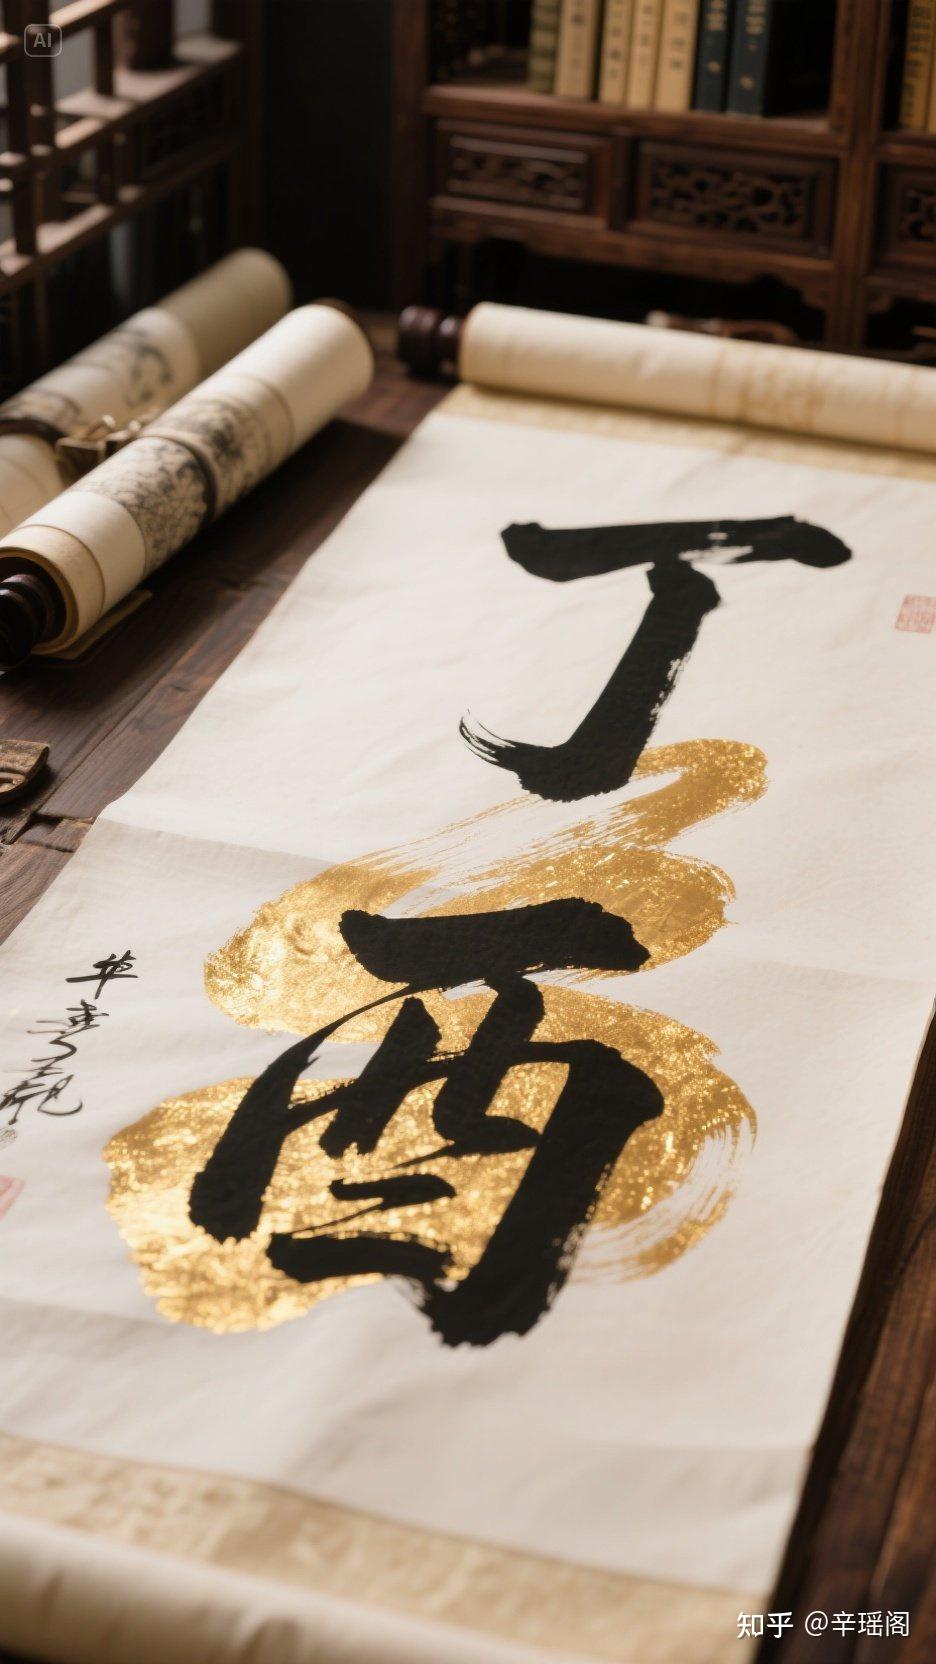 AI
丁
酉
知乎 @辛瑶阁